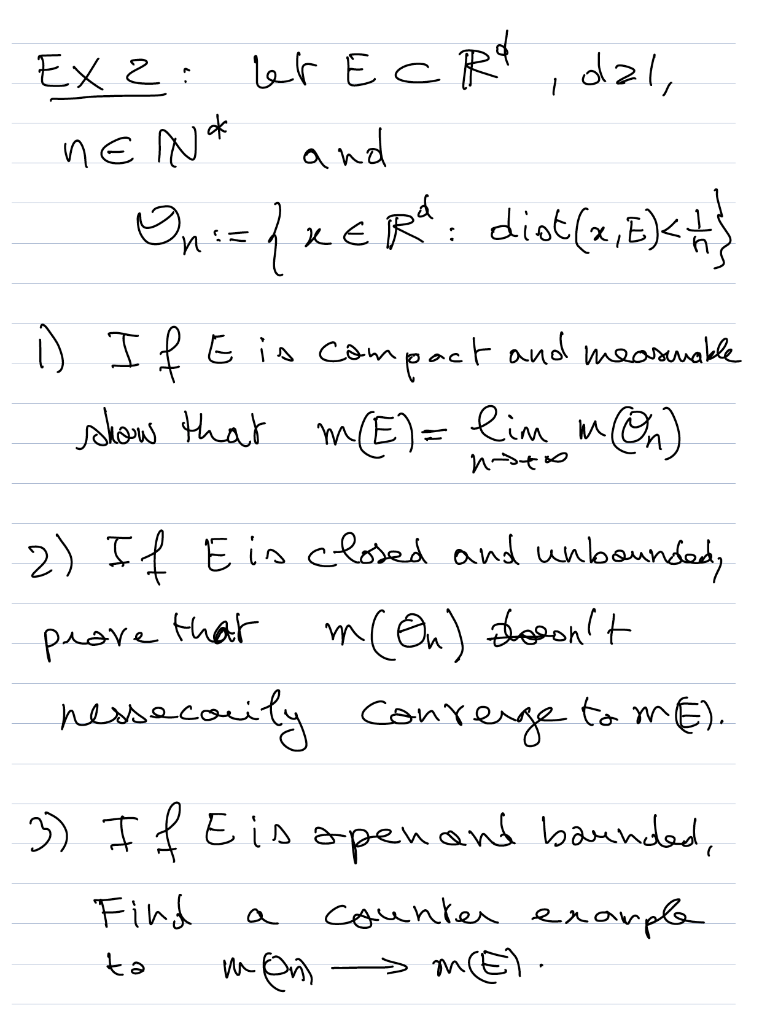 Ex 2: let E ⊂ ℝ^d, d≥1,
n ∈ ℕ* and
O_n := { x ∈ ℝ^d : dist(x,E) < 1/n }
1) If E is compact and measurable
show that m(E) = lim_{n→+∞} m(O_n)
2) If E is closed and unbounded,
prove that m(O_n) doesn't
nessecarily converge to m(E).
3) If E is open and bounded,
Find a counter example
to m(O_n) → m(E).